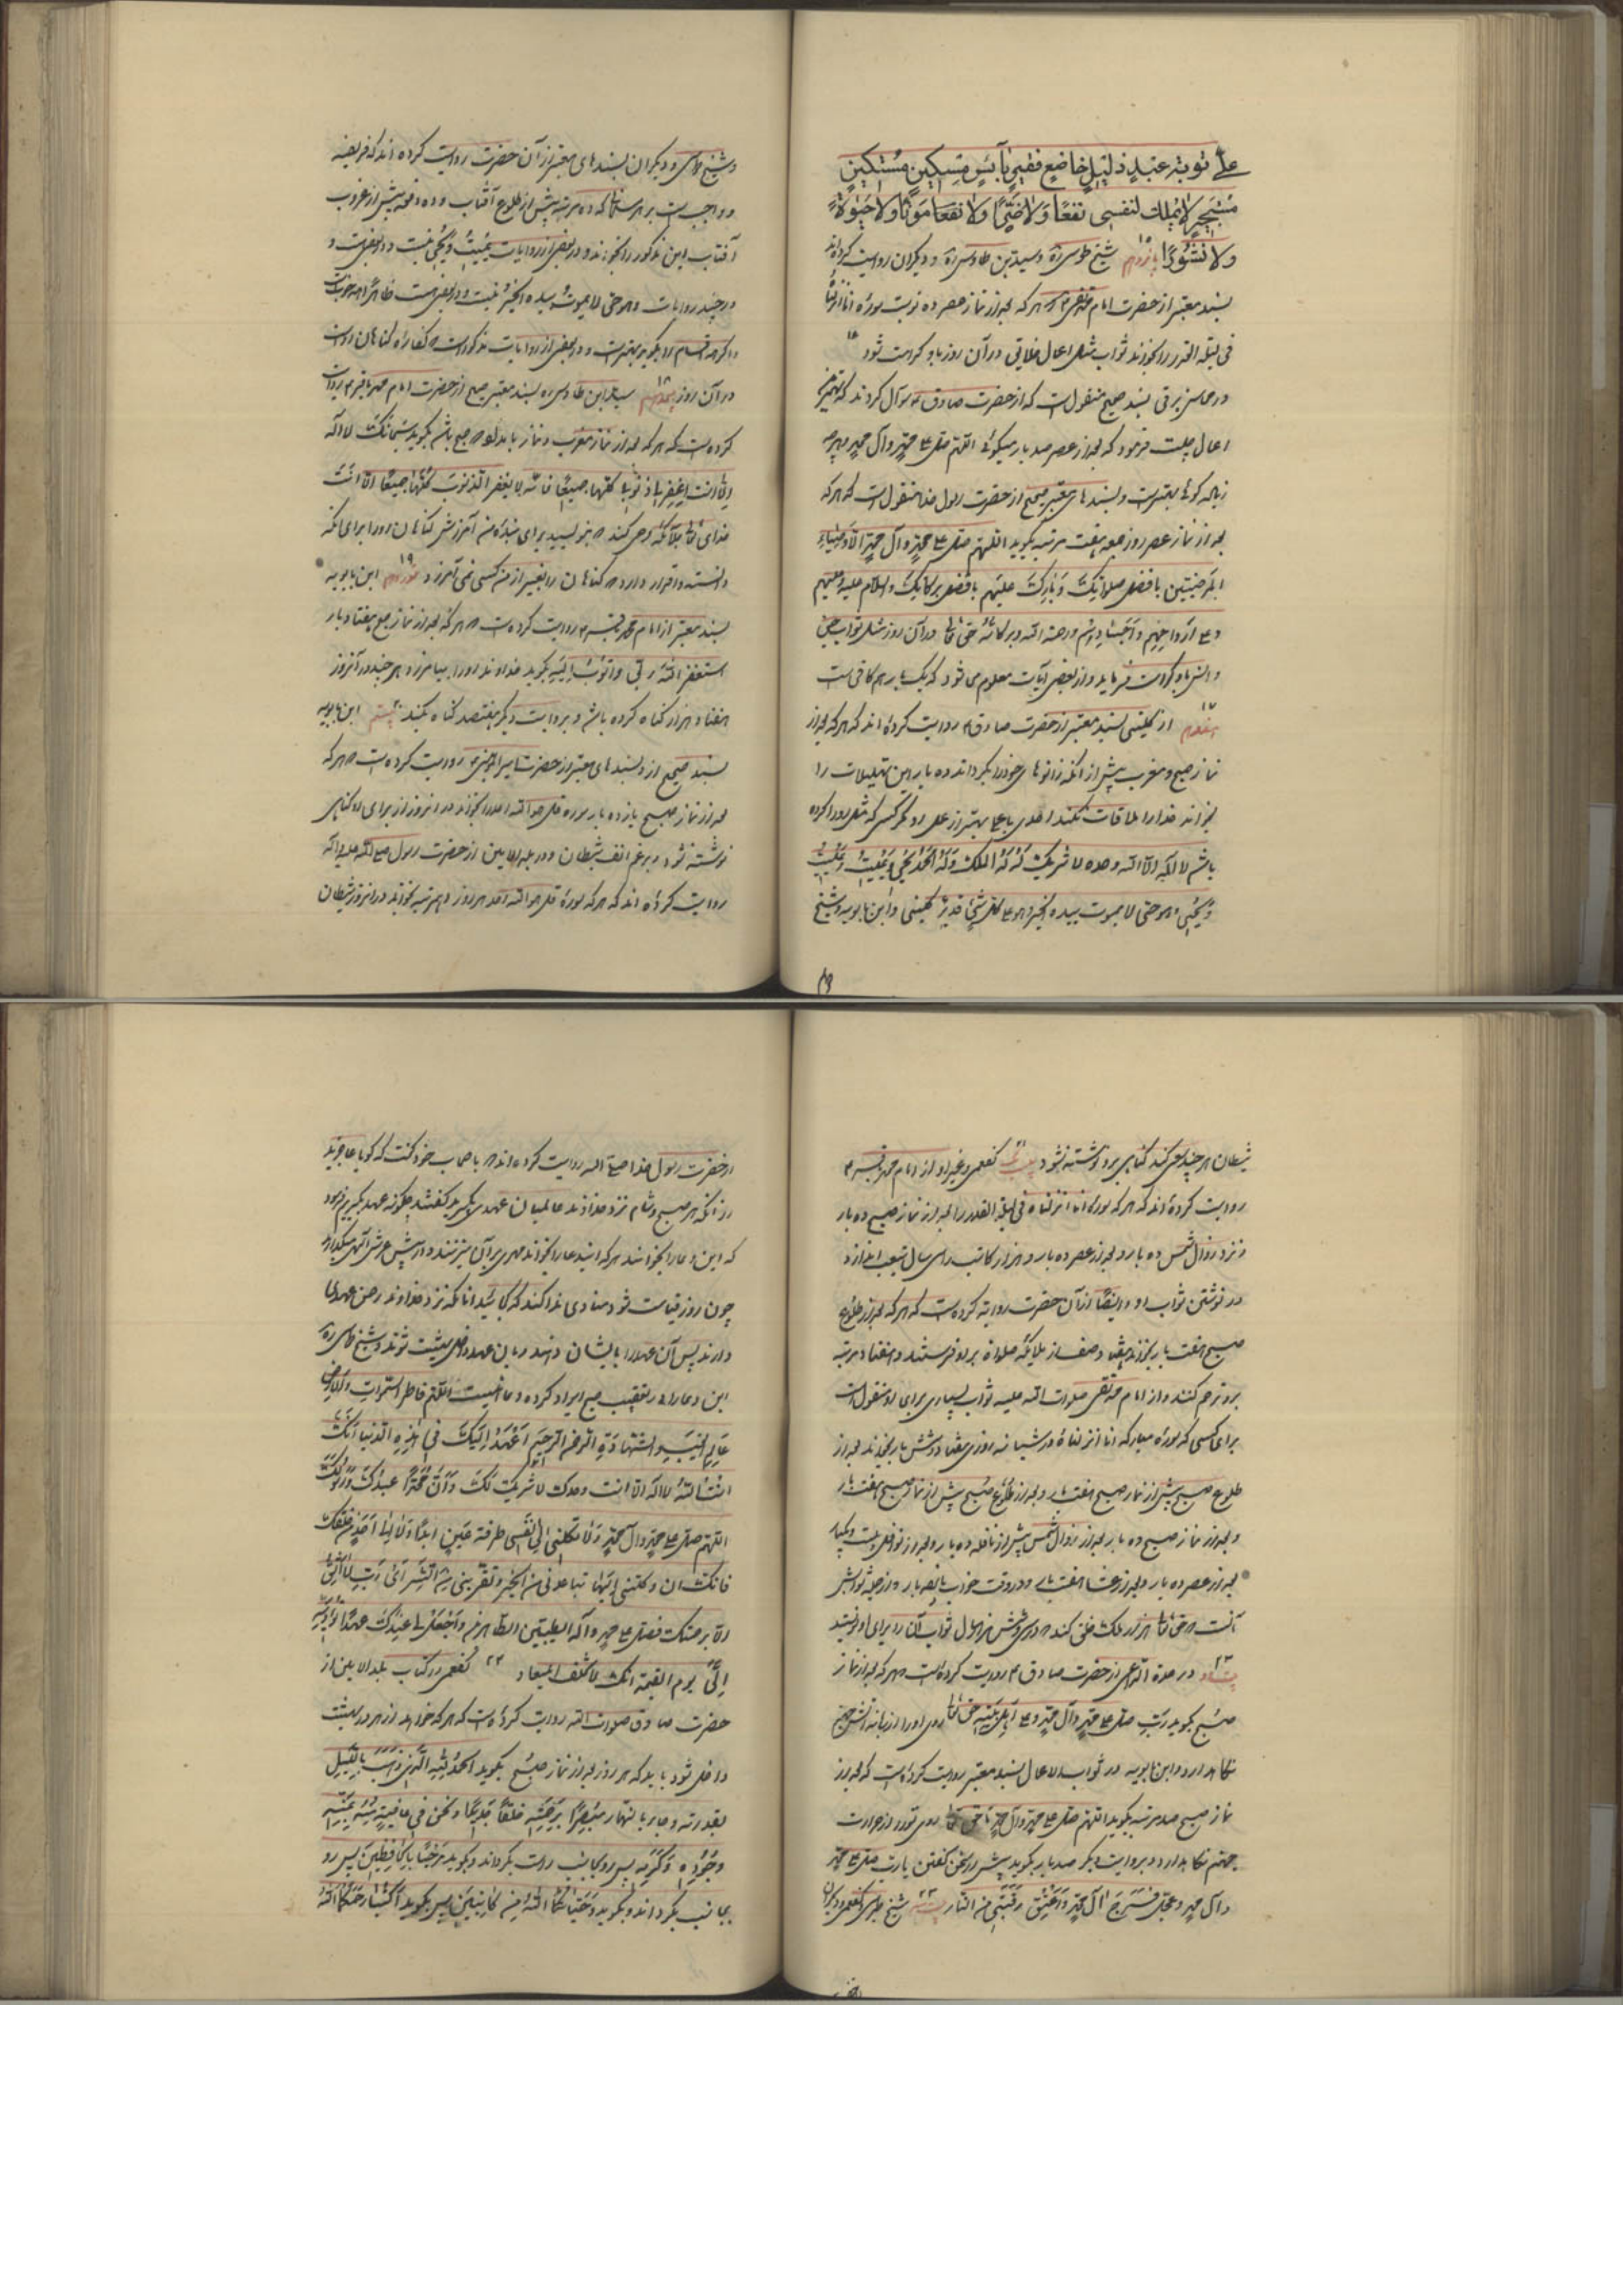 علی توبة عبد ذلیل خاضع فقیر بآئس مسکین مستکین
مستجیر لا یملک لنفسی نفعًا ولا ضرًّا ولا نفعا موتًا ولا حیٰوةً
ولا نشورًا پانزدهم شیخ طوسی ره وسید بن طاوس ره و دیکران روایت کرده‌اند
بسند معتبر از حضرت امام محمد تقی که هر که بعد از نماز عصر ده نوبت سوره انا انزلناه
فی لیلة القدر را بخواند ثواب مثل اعمال خلایق در آن روز باو کرامت شود
در محاسن برقی بسند صحیح منقول است که از حضرت صادق ع سوال کردند که بهترین
اعمال چیست فرمود که بعد از عصر صد بار میکوئی اللهم صل علی محمد وآل محمد و هر چه
زیاده کوئی بهتر است و بسند های معتبر صحیح از حضرت رسول خدا منقول است که هر که
بعد از نماز عصر روز جمعه هفت مرتبه بکوید اللهم صل علی محمد وآل محمد الاوصیاء
المرضیین بافضل صلواتک وبارک علیهم بافضل برکاتک والسلام علیه وعلیهم
وعلی ارواحهم واجسادهم ورحمة الله وبرکاته حق تعالی در آن روز مثل ثواب جن
وانس باو کرامت فرماید و از بعض آیات معلوم می شود که یک بار هم کافی است
هفدهم از کلینی بسند معتبر از حضرت صادق ع روایت کرده‌اند که هر که بعد از
نماز صبح و مغرب پیش از آنکه زانوهای خود را بکرداند ده بار این تهلیلات را
بخواند خدا را ملاقات نکند احدی با عملی بهتر از عمل او مکر کسی که مثل او را کرده
باشد لا اله الا الله وحده لا شریک له له الملک وله الحمد یحیی ویمیت ویمیت
ویحیی وهو حی لا یموت بیده الخیر وهو علی کل شیء قدیر کلینی وابن بابویه وشیخ
وشیخ طوسی و دیکران بسند های معتبر از آن حضرت روایت کرده اند که فریضه
و واجب است بر هر مسلمانی که ده مرتبه پیش از طلوع آفتاب و ده دفعه پیش از غروب
آفتاب این مذکور را بخواند و در بعض از روایات یمیت ویحیی نیست و در بعض هست و
در چند روایات وهو حی لا یموت بیده الخیر نیست و در بعض هست ظاهرًا همه خوبست
و اکر همه اقسام را بکوید بهتر است و در بعض از روایات مذکور است که کفاره کناهان اوست
در آن روز هجدهم سید ابن طاوس ره بسند معتبر صحیح از حضرت امام محمد باقر ع روایت
کرده است که هر که بعد از نماز مغرب و نماز بامداد بکوید سبحانک لا اله
الا انت اغفر لی ذنوبی کلها جمیعًا فانه لا یغفر الذنوب کلها جمیعًا الا انت
خدای تعالی بملائکه وحی کند که بنویسید برای بنده من آمرزش کناهان او را برای آنکه
دانسته و اقرار دارد که کناهان را بغیر از من کسی نمی آمرزد نوزدهم ابن بابویه
بسند معتبر از امام محمد باقر ع روایت کرده است که هر که بعد از نماز صبح هفتاد بار
استغفر الله ربی واتوب الیه بکوید خداوند او را بیامرزد هر چند در آنروز
هفتاد هزار کناه کرده باشد و بروایت دیکر هفتصد کناه بکند بیستم ابن بابویه
بسند صحیح از و بسند های معتبر از حضرت امیر المؤمنین ع روایت کرده است که هر که
بعد از نماز صبح یازده بار سوره قل هو الله احد را بخواند در آنروز از برای او کناهی
نوشته نشود بر رغم انف شیطان و در بلد الامین از حضرت رسول صلی الله علیه وآله
روایت کرده اند که هر که سوره قل هو الله احد هر روز ده مرتبه بخواند در آنروز شیطان
شیطان هر چند سعی کند کناهی بر او نوشته نشود کفعمی و غیر او از امام محمد باقر ع
روایت کرده‌اند که هر که سوره انا انزلناه فی لیلة القدر را بعد از نماز صبح ده بار
و نزد زوال شمس ده بار و بعد از عصر ده بار دو هزار کاتب را سی سال بتعب اندازد
در نوشتن ثواب او و ایضًا از آن حضرت روایة کرده است که هر که بعد از طلوع
صبح هفت بار بخواند هفتاد صف از ملائکه صلوات بر او فرستند و هفتاد مرتبه
بر او ترحم کنند و از امام محمد تقی صلوات الله علیه ثواب بسیاری برای او منقول است
برای کسی که سوره مبارکه انا انزلناه در شبانه روزی هفتاد و شش بار بخواند بعد از
طلوع صبح پیش از نماز صبح هفت بار و بعد از طلوع صبح پیش از نماز صبح هفت بار
و بعد از نماز صبح ده بار بعد از زوال شمس پیش از نافله ده بار و بعد از نوافل بیست و یکبار
بعد از عصر ده بار و بعد از عشا هفت بار و در وقت خواب یازده بار و از جمله ثوابش
آنست که حق تعالی هزار ملک خلق کند که سی و شش هزار سال ثواب آن را برای او نویسند
در عدة الداعی از حضرت صادق ع روایت کرده است هر که بعد از نماز
صبح بکوید رب صل علی محمد وآل محمد وعلی اهل بیته حق تعالی روی او را از زبانه آتش جهنم
نکاه دارد و ابن بابویه در ثواب الاعمال بسند معتبر روایت کرده است که بعد از
نماز صبح صد مرتبه بکوید اللهم صل علی محمد وآل محمد حق تعالی روی او را از حرارت
جهنم نکاه دارد و بروایت دیکر صد بار بکوید پیش از سخن کفتن یا رب صل علی محمد
وآل محمد وعجل فرج آل محمد واعتق رقبتی من النار شیخ طوسی و کفعمی و دیکران
از حضرت رسول خدا صلی الله روایت کرده‌اند که باصحاب خود کفت که کویا عاجزید
از آنکه هر صبح و شام نزد خداوند عالمیان عهدی بکیرید کفتند چکونه عهد بکیریم فرمود
که این دعا را بخوانند هر که این دعا را بخواند مهری بر آن میزنند و در پیش عرش الهی میکذارند
چون روز قیامت شود منادی ندا کند که کجایند آنانکه نزد خداوند رحمن عهدی
دارند پس آن عهد را بایشان دهند و بان عهد داخل بهشت شوند و شیخ طوسی ره
این دعا را در تعقیب صبح ایراد کرده و دعا اینست اللهم فاطر السموات والارض
عالم الغیب والشهادة الرحمن الرحیم اعهد الیک فی هذه الدنیا انک
انت الله لا اله الا انت وحدک لا شریک لک وان محمدًا عبدک ورسولک
اللهم صل علی محمد وآل محمد ولا تکلنی الی نفسی طرفة عین ابدًا ولا الی احد من خلقک
فانک ان وکلتنی الیها تباعدنی من الخیر وتقربنی من الشر ای رب لا اثق
الا برحمتک فصل علی محمد وآله الطیبین الطاهرین واجعل لی عندک عهدًا تؤدیه
الی یوم القیمة انک لا تخلف المیعاد ۲۴ کفعمی در کتاب بلد الامین از
حضرت صادق صلوات الله روایت کرده است که هر که خواهد از هر در بهشت
داخل شود باید که هر روز بعد از نماز صبح بکوید الحمد لله الذی ذهب باللیل
بقدرته وجاء بالنهار مبصرًا برحمته خلقًا جدیدًا ونحن فی عافیة منه بمنه
وجوده وکرمه پس رو بجانب راست بکرداند و بکوید مرحبًا بالحافظین پس رو
بجانب چپ بکرداند و بکوید وحیاکما الله من کاتبین پس بکوید اکتبا رحمکما الله